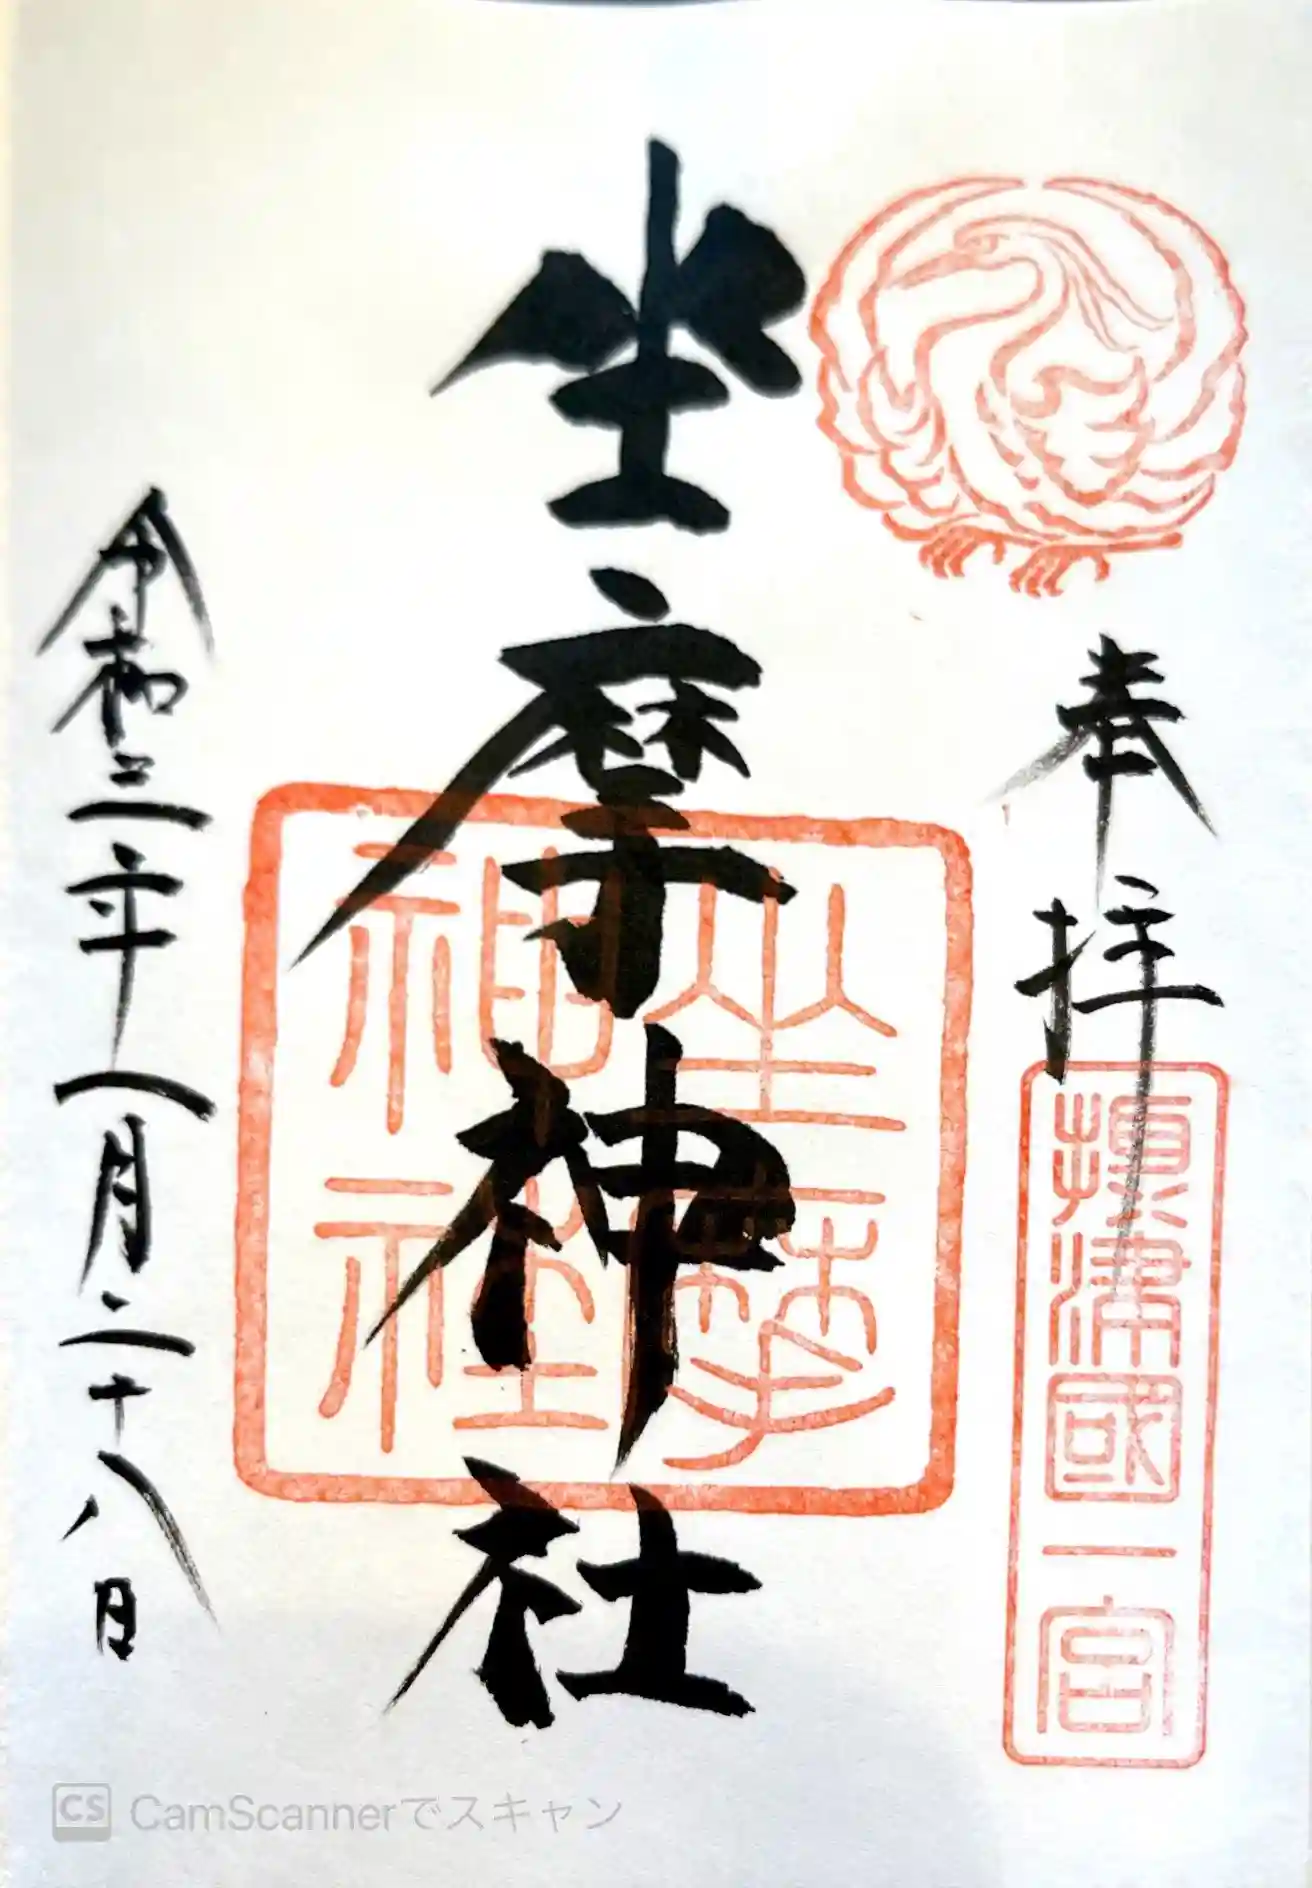 奉拝
攝津國一宮
坐摩神社
坐摩神社
令和三年一月二十八日
CS CamScannerでスキャン